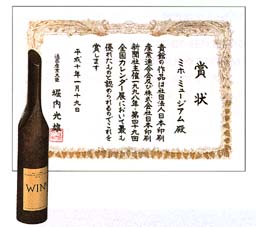 賞状
ミホ・ミュージアム殿
貴館の作品は社団法人日本印刷
産業連合会及び株式会社日本印刷
新聞社主催一九九八年・第四十九回
全国カレンダー展において最も
優れたものと認められるのでこれを
賞します
平成十年一月十九日
通商産業大臣
堀内光雄
WIN